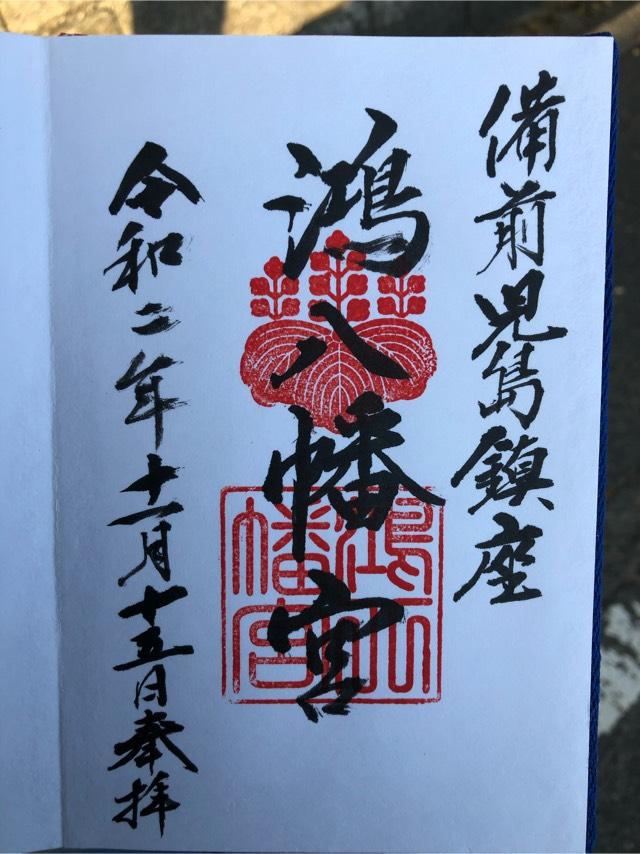 備前児島鎮座
鴻八幡宮
鴻八
幡宮
令和二年十一月十五日奉拝